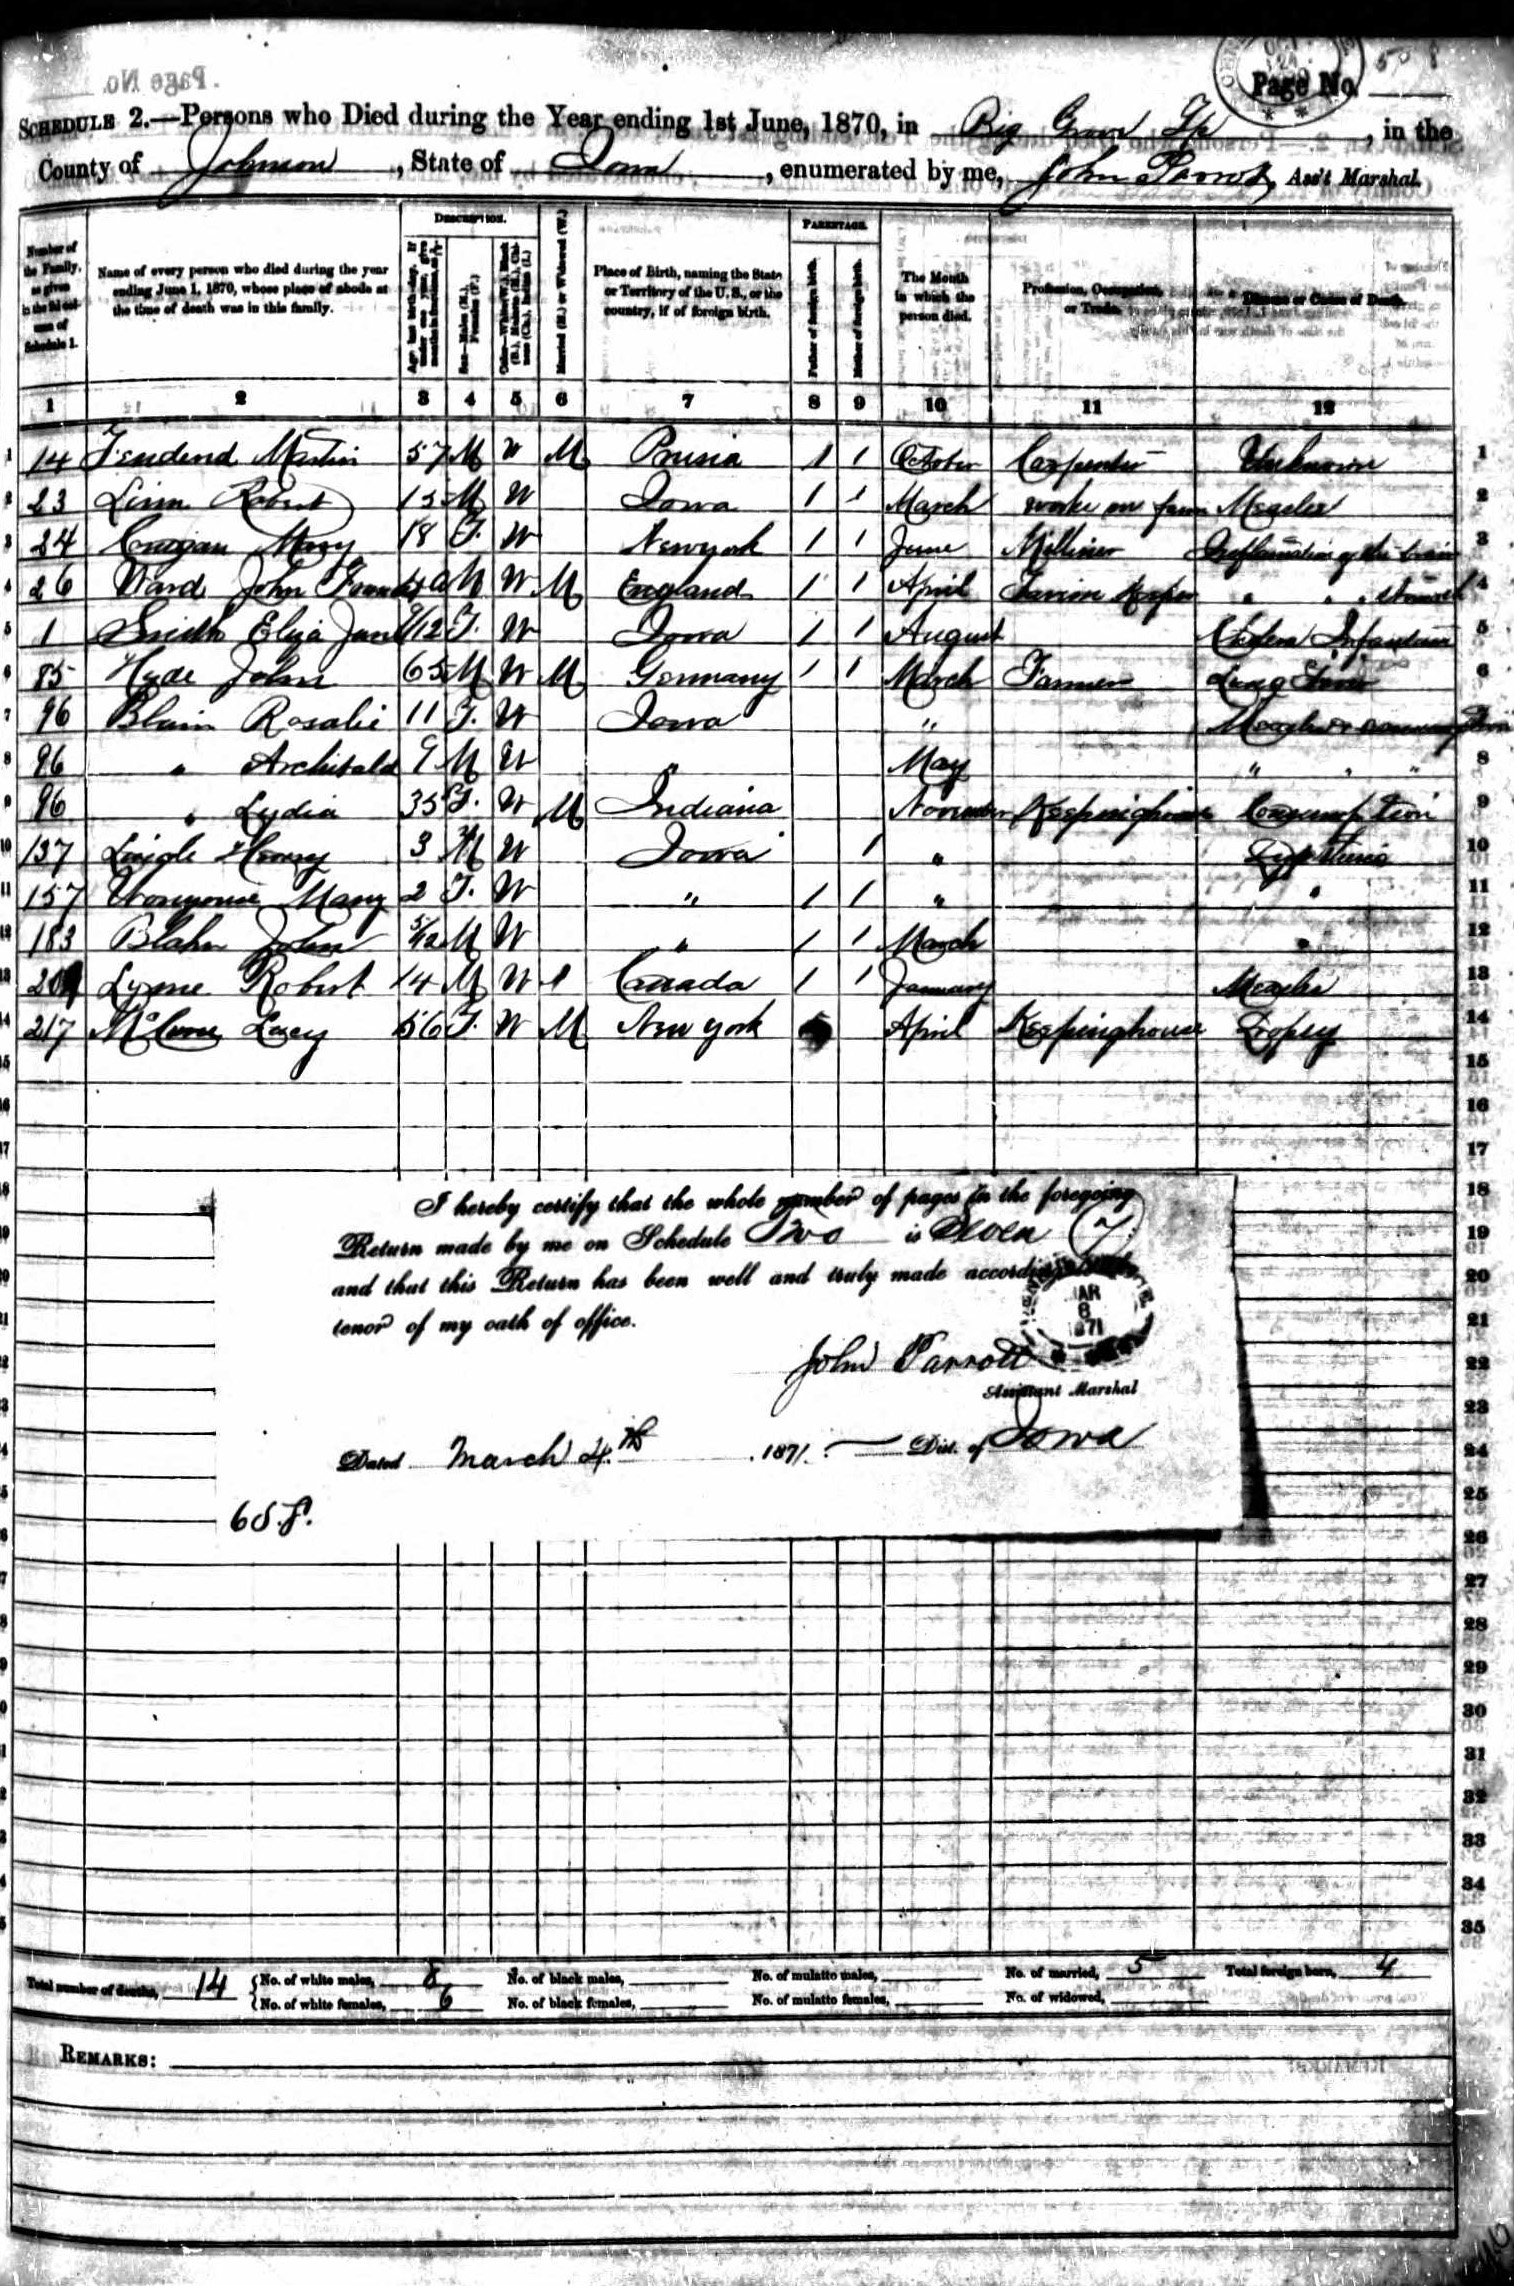 Page No. 508
SCHEDULE 2.—Persons who Died during the Year ending 1st June, 1870, in Big Grove Tp, in the
County of Johnson, State of Iowa, enumerated by me, John Parrott, Ass't Marshal.
DESCRIPTION. PARENTAGE.
Number of the Family, as given in the 2d column of Schedule 1.
Name of every person who died during the year ending June 1, 1870, whose place of abode at the time of death was in this family.
Age last birth-day. If under one year, give months in fractions, as
Sex—Males (M.), Females (F.)
Color—White (W.), Black (B.), Mulatto (M.), Chinese (Ch.), Indian (I.)
Married (M.) or Widowed (W.)
Place of Birth, naming the State or Territory of the U. S., or the country, if of foreign birth.
Father of foreign birth.
Mother of foreign birth.
The Month in which the person died.
Profession, Occupation, or Trade.
Disease or Cause of Death.
1 2 3 4 5 6 7 8 9 10 11 12
1 14 Martin 57 M W M Prusia 1 1 October Carpenter Unknown 1
2 23 Linn Robert 15 M W Iowa 1 1 March works on farm Measles 2
3 24 Cragan Mary 18 F. W Newyork 1 1 June Milliner Inflamation of the brain 3
4 26 Ward John M W M England 1 1 April Keeper " " " stomach 4
5 1 Smith Eliza Jane 9/12 F. W Iowa 1 1 August Cholera Infantum 5
6 85 Hyde John 65 M W M Germany 1 1 March Farmer Lung Fever 6
7 96 Blain Rosalie 11 F. W Iowa " Measles & consumption
8 96 " Archibald 9 M W " May " " " 8
9 96 " Lydia 35 F. W M Indiana November Keepinghouse Consumption 9
10 137 Henry 3 M W Iowa 1 " 10
11 157 Mary 2 F. W " 1 1 " " 11
12 183 Blahn John 5/12 M W " 1 1 March " 12
13 Lynne Robert 14 M W Canada 1 1 January Measles 13
14 217 McCune Lucy 56 F. W M New york April Keepinghouse Dropsy 14
15
16
17
18
I hereby certify that the whole number of pages in the foregoing
Return made by me on Schedule Two is Seven (7)
and that this Return has been well and truly made according
tenor of my oath of office.
MAR
8
1871
John Parrott
Assistant Marshal
Dated March 4.th 1871. Dist. of Iowa
19
20
21
22
23
24
25
26
27
28
29
30
31
32
33
34
35
Total number of deaths, 14 No. of white males, 8 No. of black males, No. of mulatto males, No. of married, 5 Total foreign born, 4
No. of white females, 6 No. of black females, No. of mulatto females, No. of widowed,
REMARKS: